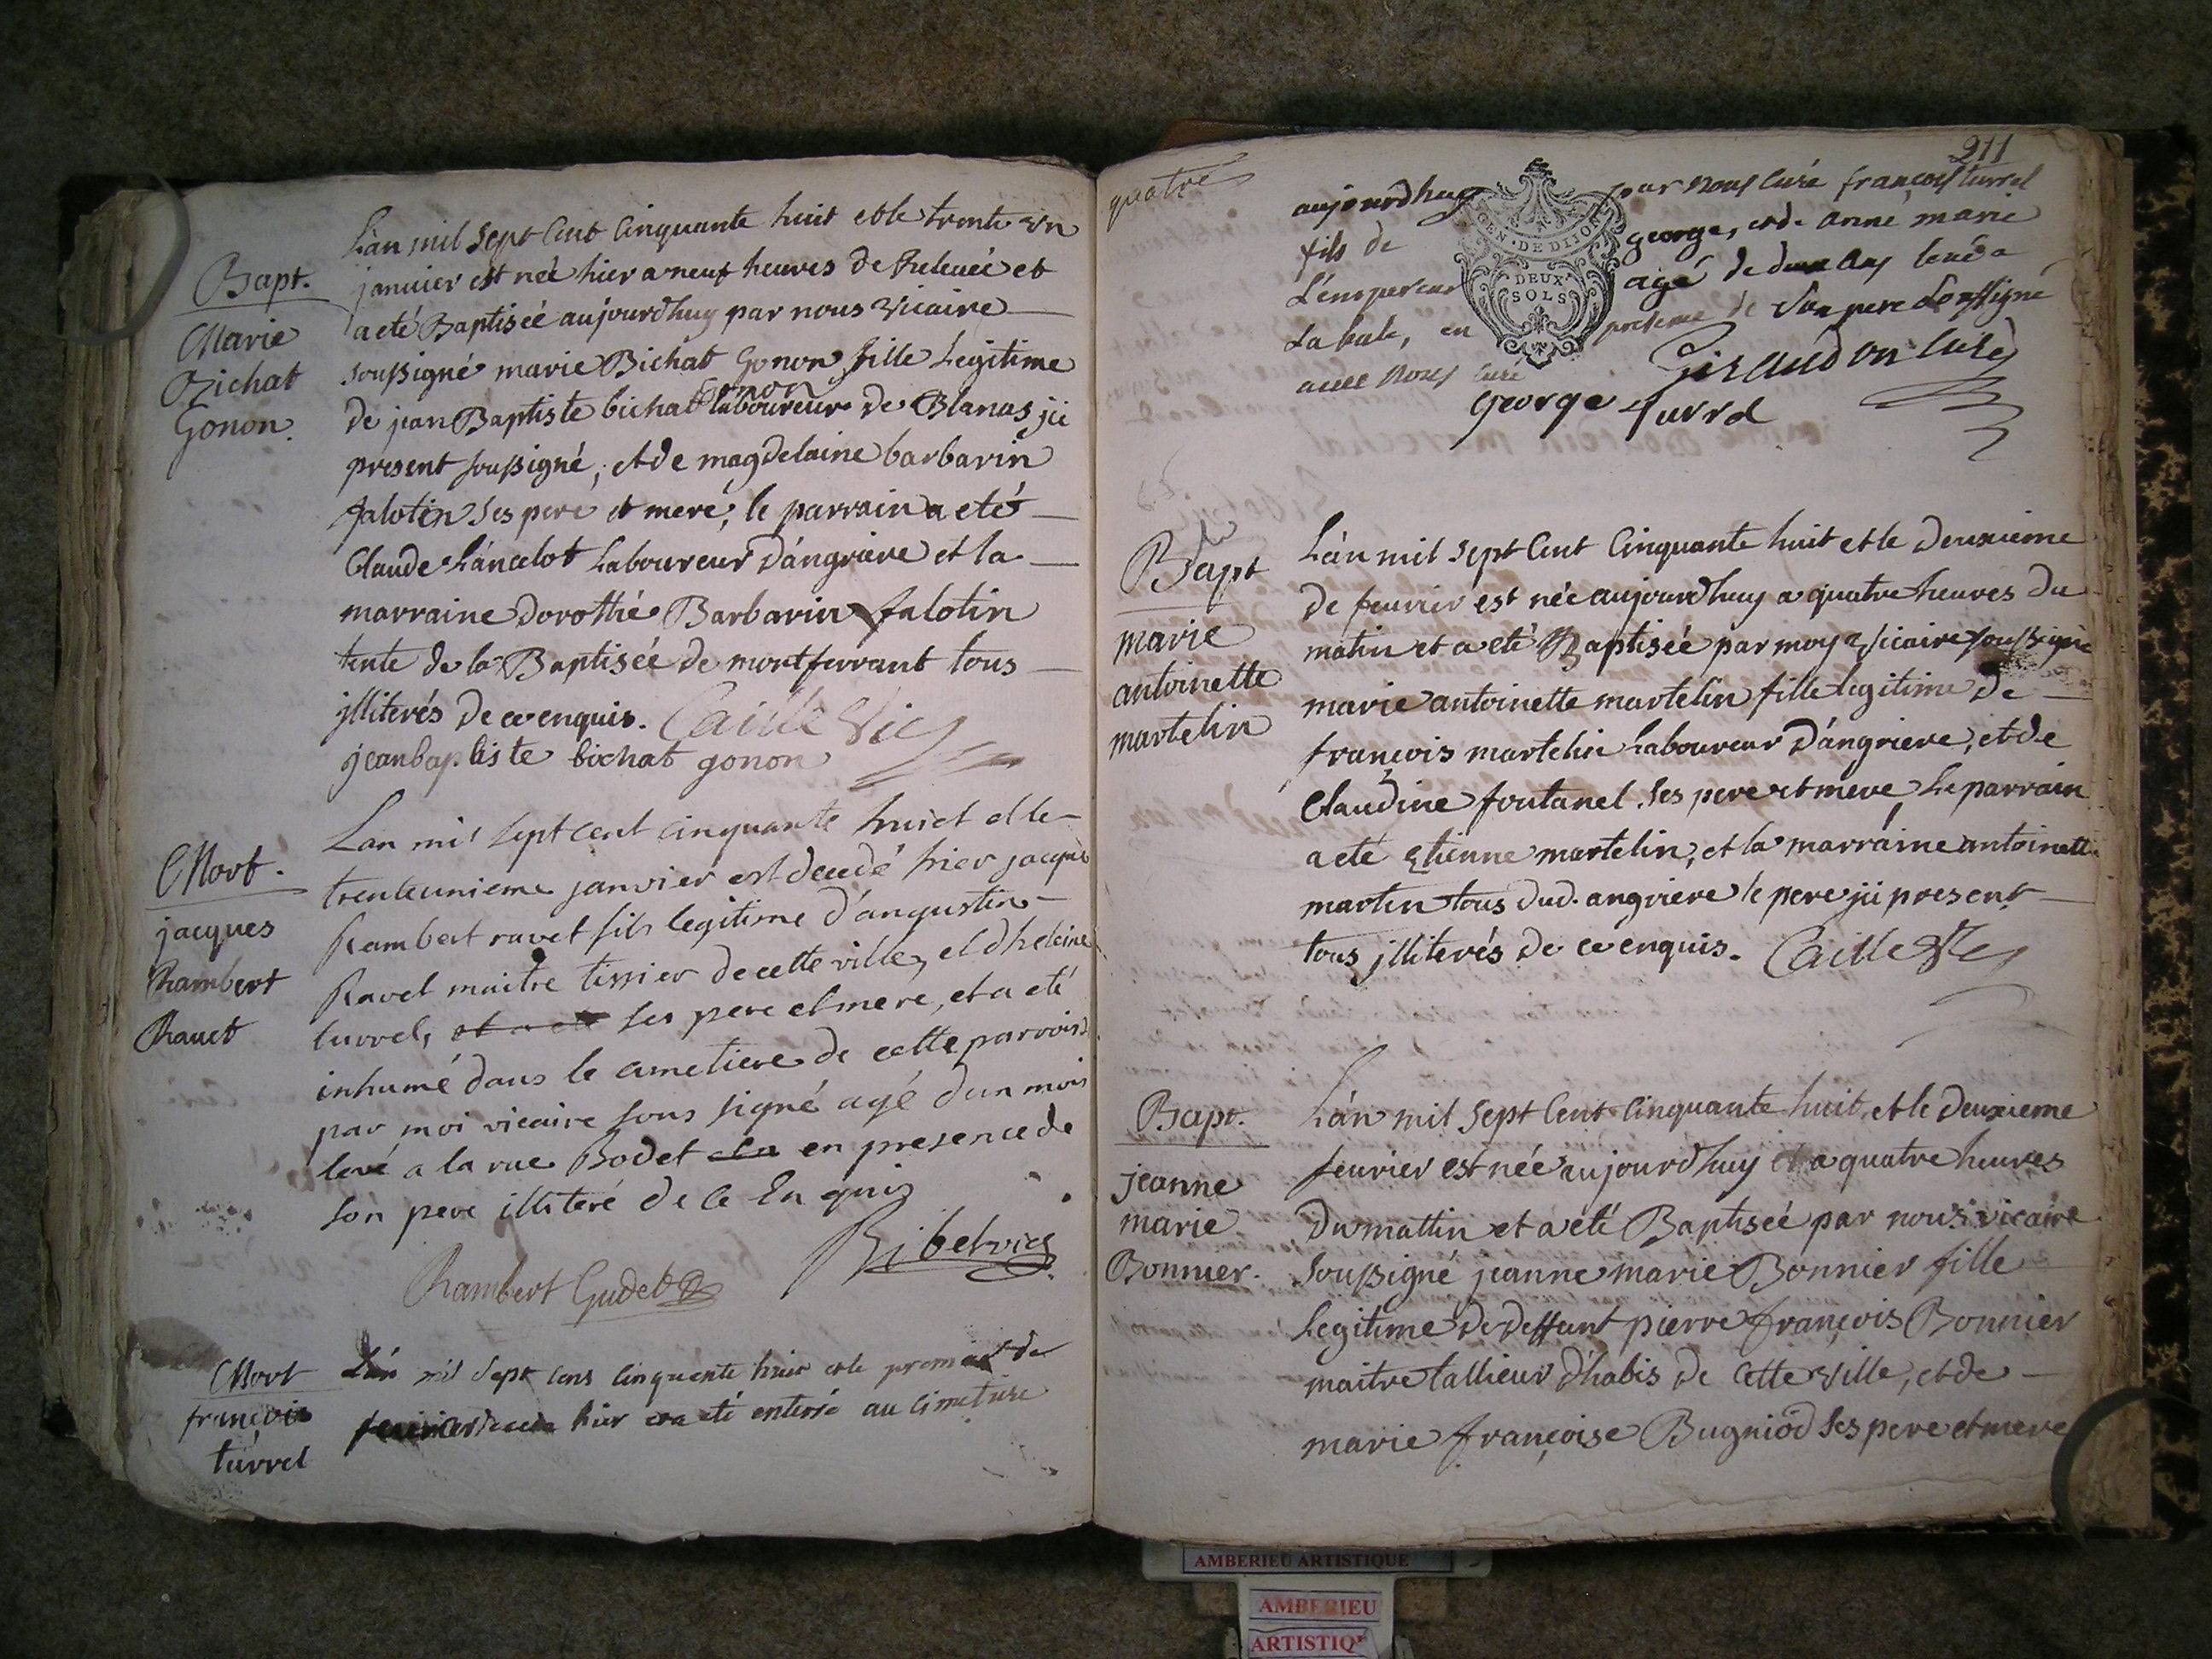 Bapt.
Marie
Bichat
Gonon.
L'an mil sept Cent Cinquante huit et le trente un
janvier est née hier a neuf heures de Relevée et
a eté Baptisée aujourdhuy par nous vicaire
soussigné marie Bichat Gonon fille Legitime
Gonon
de jean Baptiste bichat laboureur de Blanas jci
present soussigné, et de magdelaine barbarin
falotin ses pere et mere, le parrain a eté
Claude Lancelot Laboureur D'angriere et la
marraine Dorothée Barbarin falotin
tente de la Baptisée de montferrant tous
jlliterés de ce enquis. Caille Vic
jeanbaptiste bichat gonon
Mort.
jacques
Rambert
Ravet
Lan mil sept cent cinquante huict et le
trenteunieme janvier est decedé hier jacques
Rambert ravet fils legitime d'augustin
Ravet maitre tissier de cette ville, et d'heleine
turrel, et a eté ses pere et mere, et a eté
inhumé dans le cimetiere de cette parroisse
par moi vicaire sous signé agé d'un mois
levé a la rue Bodet en presence de
son pere illiteré de ce Enquis
Ribet vic
Rambert Gudet
Mort
françois
turrel
L'an mil sept cens cinquante huit et le premier de
fevrier hier et a eté enterré au cimetiere
quatre
211
aujourdhuy par nous curé françois turrel
fils de george, et de anne marie
L'empereur agé de deux ans levé a
La bale, en presence de son pere soussigné
avec nous curé Giraudon curé
George turrel
GEN. DE DIJON
DEUX
SOLS
Bapt
marie
antoinette
martelin
L'an mil sept Cent Cinquante huit et le Deuxieme
de fevrier est née aujourdhuy a quatre heures du
matin et a eté Baptisée par moy vicaire soussigné
marie antoinette martelin fille legitime de
françois martelin Laboureur D'angriere, et de
Claudine fontanel ses pere et mere Le parrain
a eté Etienne martelin, et la marraine antoinette
martin tous dud. angriere le pere jci present
tous jlliterés de ce enquis. Caille Vic
Bapt.
jeanne
marie
Bonnier.
L'an mil Sept Cent Cinquante huit, et le Deuxieme
fevrier est née aujourdhuy a quatre heures
Du mattin et a eté Baptisée par nous vicaire
Soussigné jeanne marie Bonnier fille
Legitime de deffunt pierre françois Bonnier
maitre tallieur d'habis de Cette ville, et de
marie françoise Bugniod ses pere et mere
AMBERIEU ARTISTIQUE
AMBERIEU
ARTISTIQ